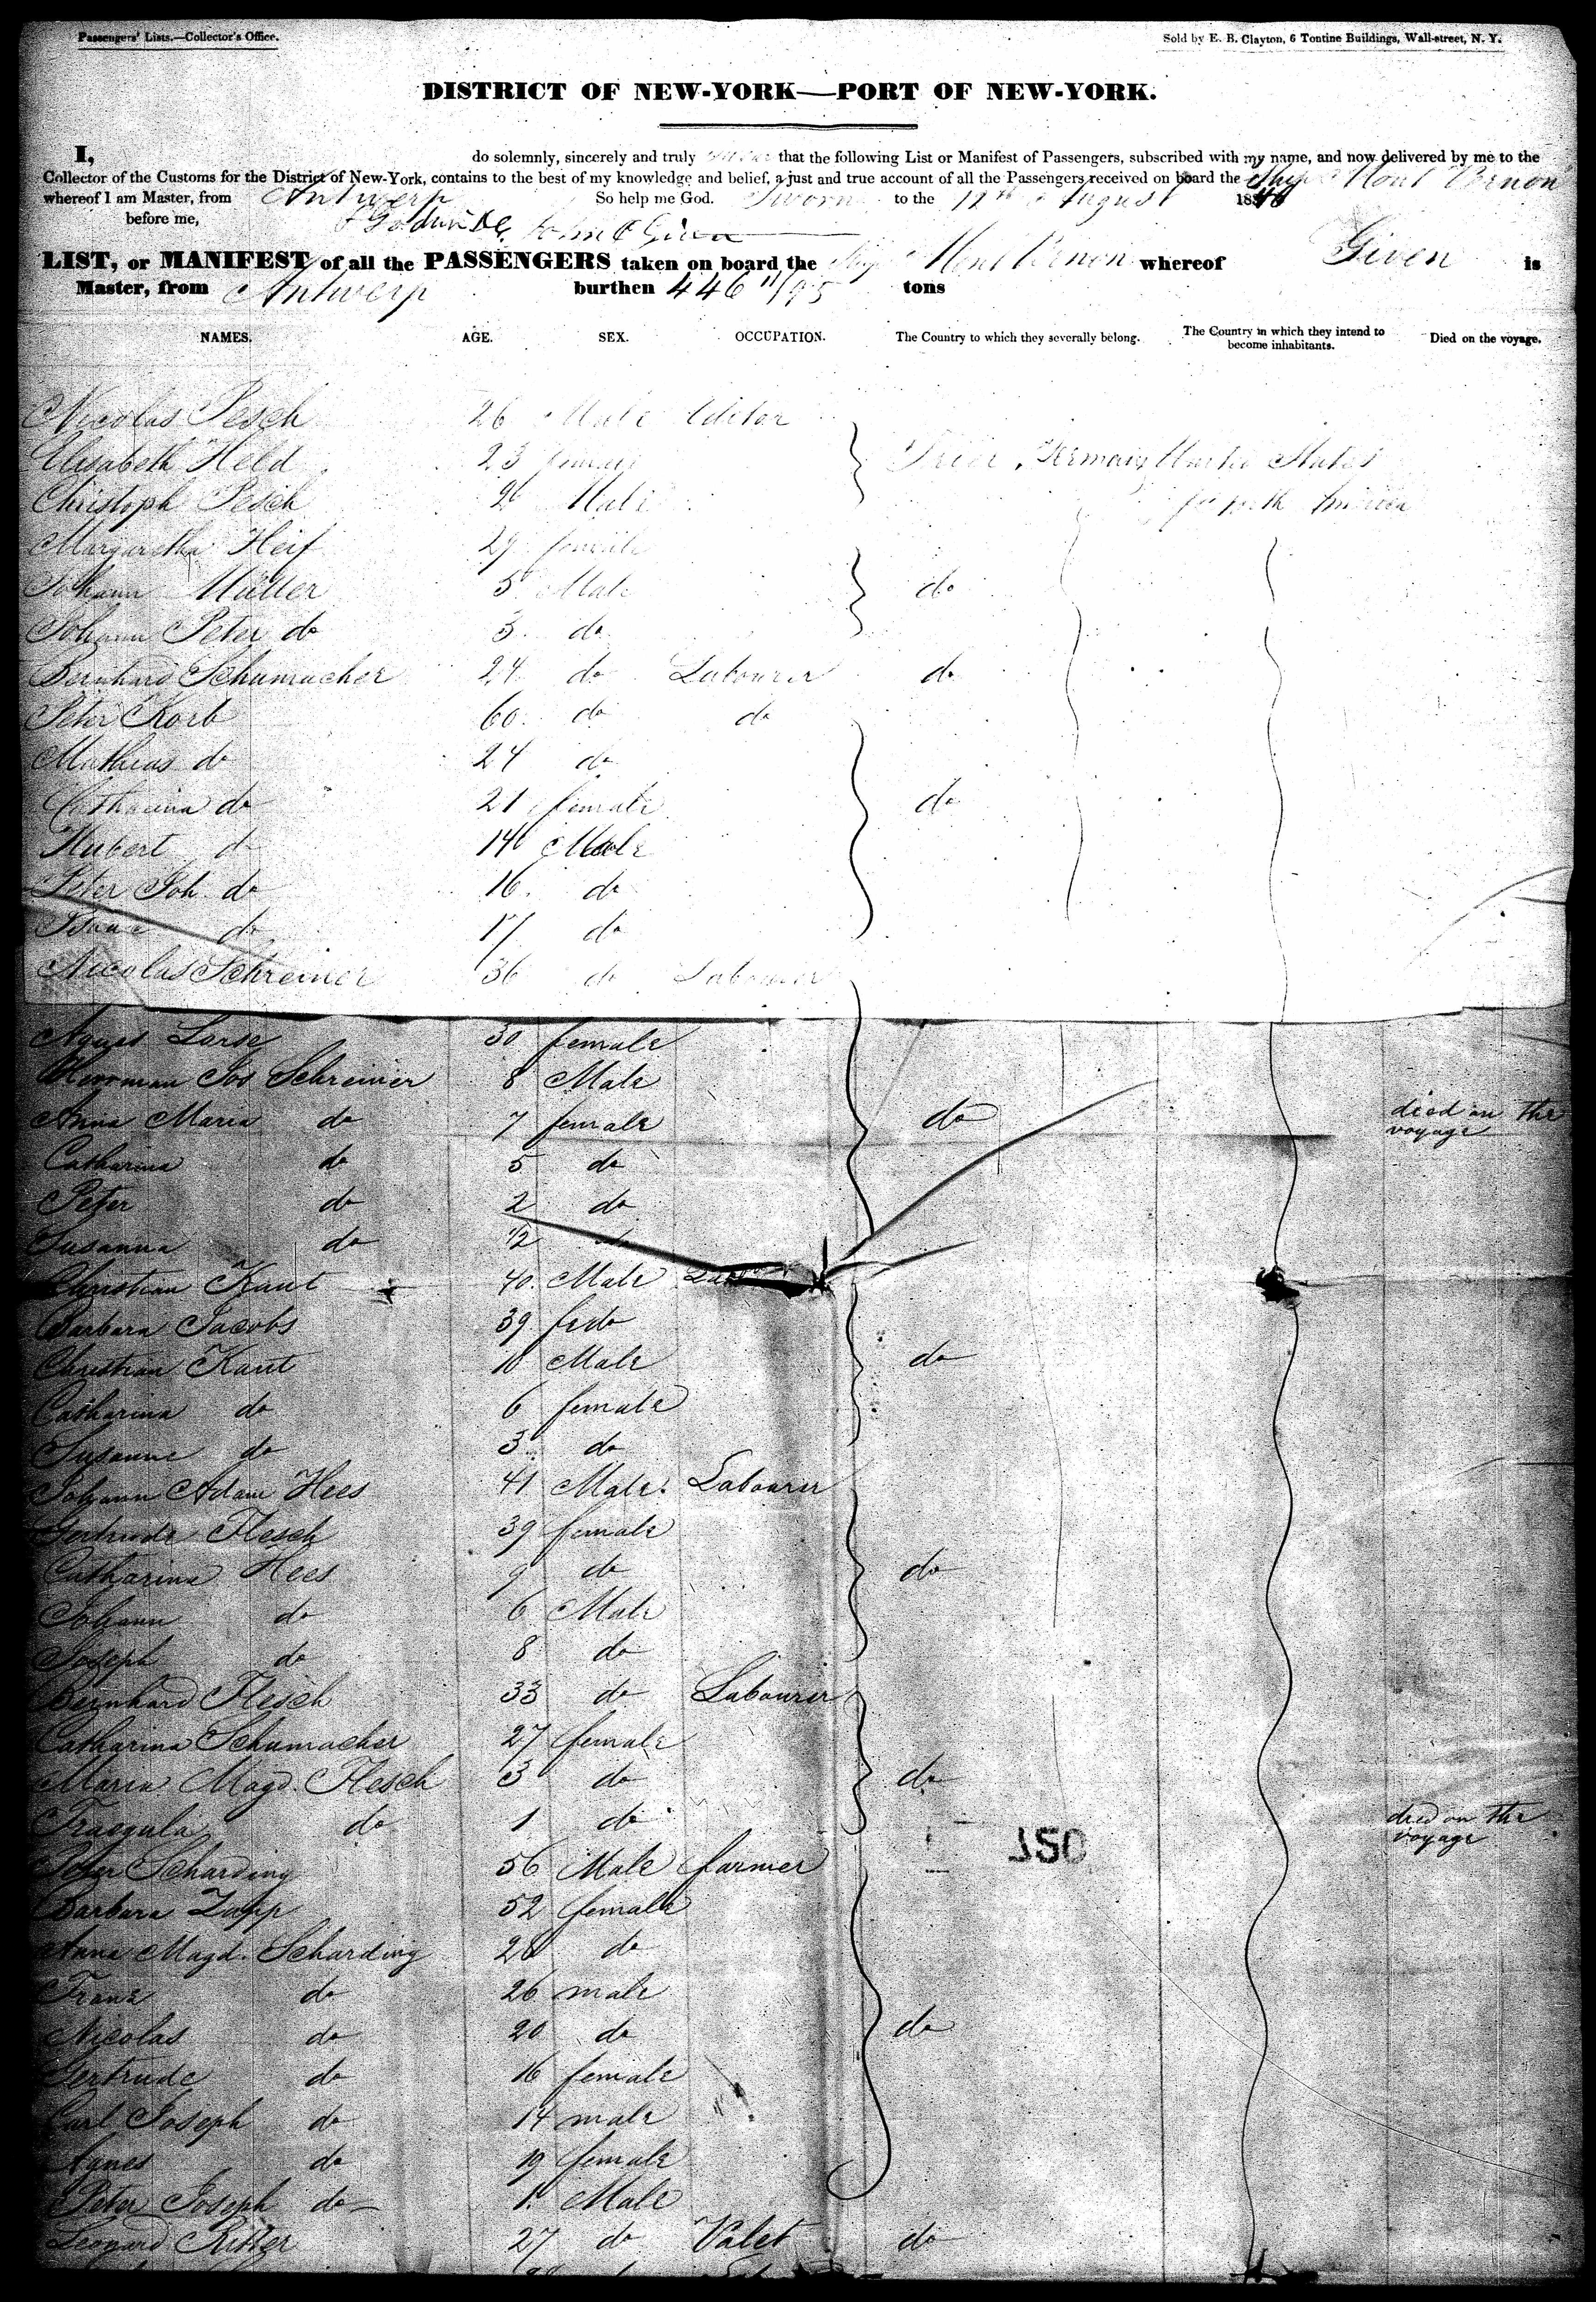 Passengers' Lists.—Collector's Office.
Sold by E. B. Clayton, 6 Tontine Buildings, Wall-street, N. Y.
DISTRICT OF NEW-YORK—PORT OF NEW-YORK.
I, do solemnly, sincerely and truly that the following List or Manifest of Passengers, subscribed with my name, and now delivered by me to the
Collector of the Customs for the District of New-York, contains to the best of my knowledge and belief, a just and true account of all the Passengers received on board the Ship Mont Vernon
whereof I am Master, from Antwerp So help me God. Sworn to the August 18
before me,
LIST, or MANIFEST of all the PASSENGERS taken on board the Ship Mont Vernon whereof Given is
Master, from Antwerp burthen 446 11/95 tons
NAMES. AGE. SEX. OCCUPATION. The Country to which they severally belong. The Country in which they intend to become inhabitants. Died on the voyage.
Nicolas Pesch 26 Male Editor
Elisabeth Held 23 female Trier, Germany United States
Christoph Pesch Male North America
Margaretha Heif 29 female
Johann Müller 5 Male do
Johann Peter do 3 do
Bernhard Schumacher 24 do Labourer do
Peter Korb 60 do do
Mathias do 24 do
Catharina do 21 female do
Hubert do 14 Male
Peter Joh. do 16 do
do 17 do
Nicolas Schreiner 36 do Labourer
Agnes Lorse 30 female
Herrman Jos Schreiner 8 Male
Anna Maria do 7 female do died on the voyage
Catharina do 5 do
Peter do 2 do
Susanna do 1/2 do
Christian Kaut 40 Male
Barbara Jacobs 39 fe do
Christian Kaut 10 Male do
Catharina do 6 female
Susanne do 3 do
Johann Adam Hees 41 Male. Labourer
Gertrude Flesch 39 female
Catharina Hees 9 do do
Johann do 6 Male
Joseph do 8 do
Bernhard Flesch 33 do Labourer
Catharina Schumacher 27 female
Maria Magd. Flesch 3 do do
do 1 do died on the voyage
Scharding 56 Male farmer
Barbara Zapp 52 female
Anna Magd. Scharding 28 do
Franz do 26 male
Nicolas do 20 do do
Gertrude do 16 female
Carl Joseph do 14 male
Agnes do 19 female
Peter Joseph do 1 Male
Leonard Ritter 27 do Valet do